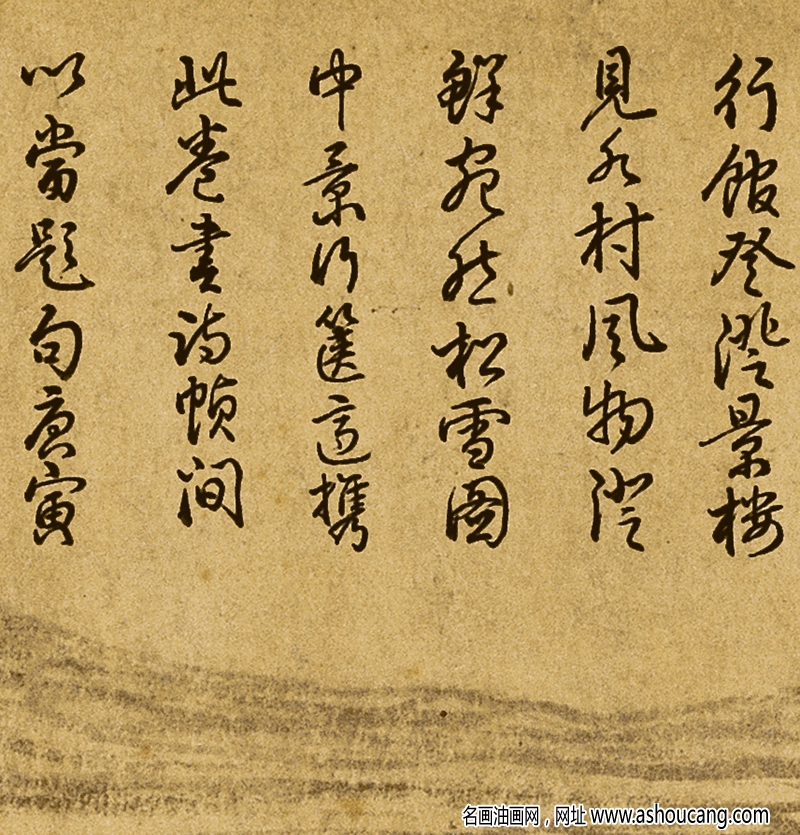 行館登澄景楼
見水村風物澄
鮮宛然松雪圖
中景行篋適携
此卷書诗帧间
以當題句庚寅
名画油画网，网址 www.ashoucang.com